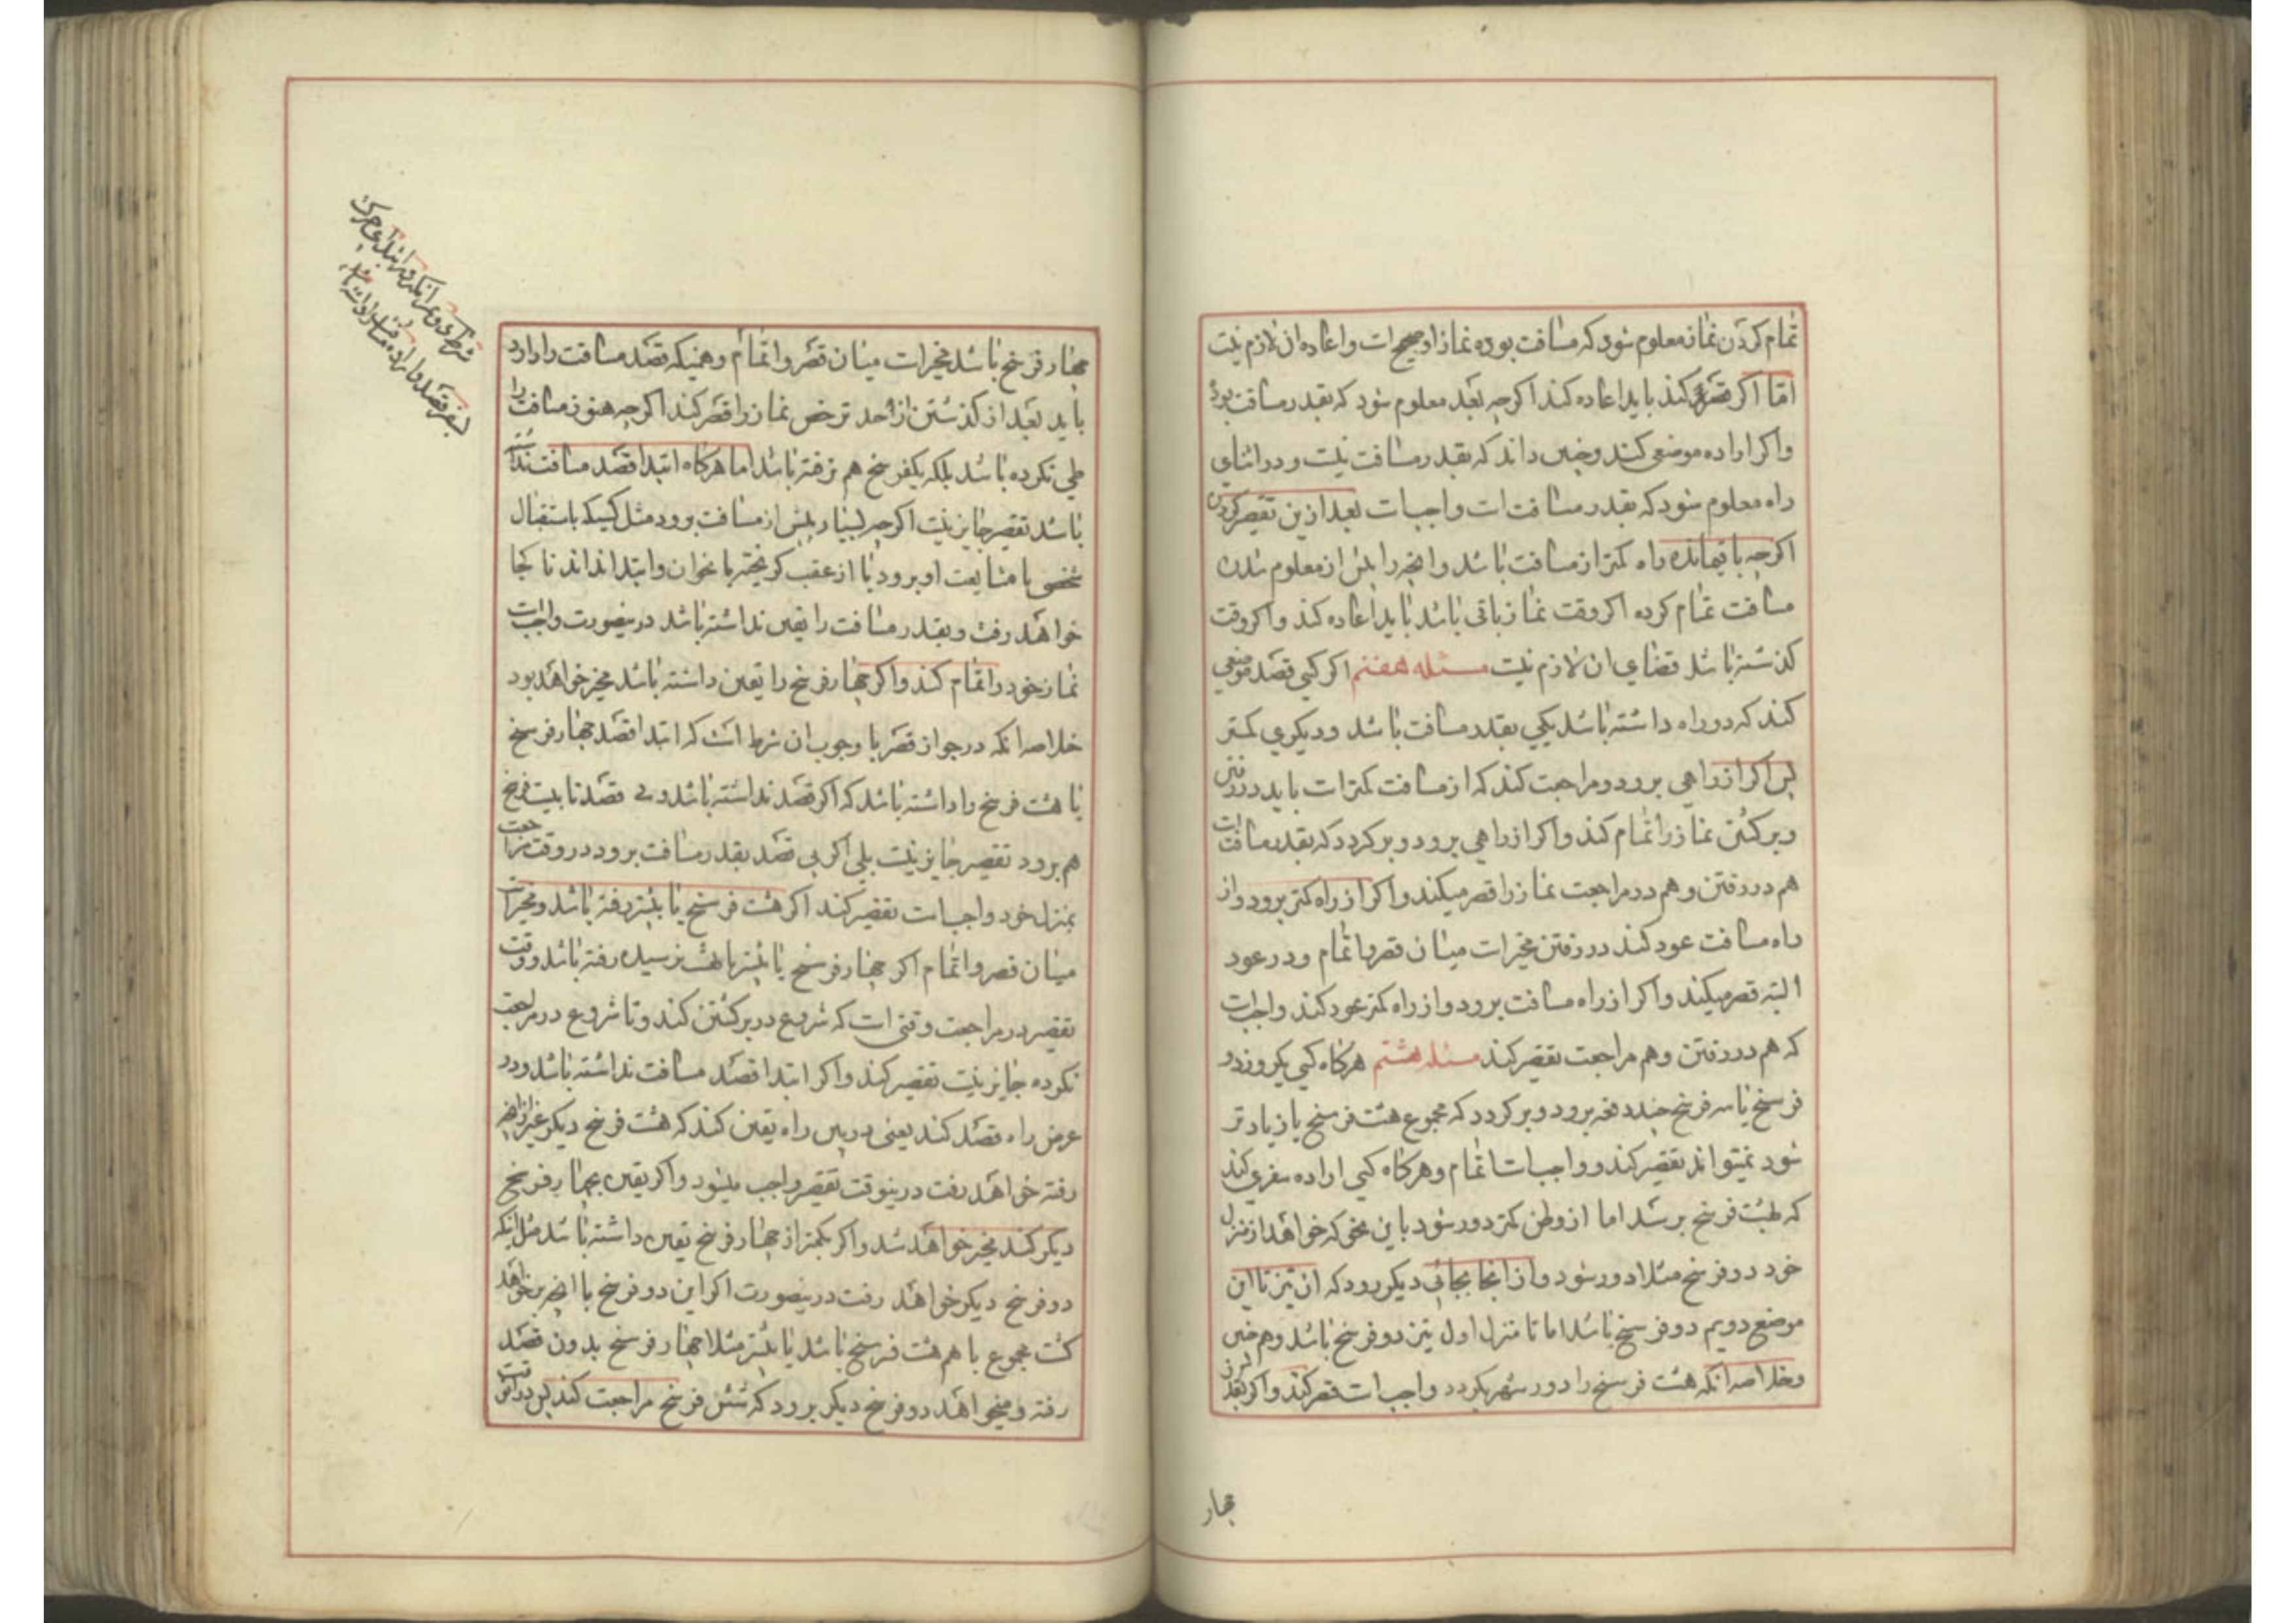 تمام کردن نماز معلوم شود که مسافت بوده نماز او صحیح است و اعاده ان لازم نیست
اما اکر قصر کند باید اعاده کند اکرچه بعد معلوم شود که بقدر مسافت بود
و اکر اراده موضعی کند و چنین داند که بقدر مسافت نیست و در اثنای
راه معلوم شود که بقدر مسافت است واجبست بعد ازین تقصیر کردن
اکرچه باقیمانده راه کمتر از مسافت باشد و انچه را پیش از معلوم شدن
مسافت تمام کرده اکر وقت نماز باقی باشد باید اعاده کند و اکر وقت
کذشته باشد قضای ان لازم نیست مسئله هفتم اکر کسی قصد موضعی
کند که دو راه داشته باشد یکی بقدر مسافت باشد و دیکری کمتر
پس اکر از راهی برود و مراجعت کند که از مسافت کمتر است باید در رفتن
و برکشتن نماز را تمام کند و اکر از راهی برود و برکردد که بقدر مسافت است
هم در رفتن و هم در مراجعت نماز را قصر میکند و اکر از راه کمتر برود و از
راه مسافت عود کند در رفتن مخیر است میان قصر یا تمام و در عود
البته قصر میکند و اکر از راه مسافت برود و از راه کمتر عود کند واجبست
که هم در رفتن و هم مراجعت تقصیر کند مسئله هشتم هرکاه کسی یکروز دو
فرسخ یا سه فرسخ چند دفعه برود و برکردد که مجموع هشت فرسخ یا زیادتر
شود نمیتواند تقصیر کند و واجبست اتمام و هرکاه کسی اراده سفری کند
که بهشت فرسخ برسد اما از وطن کمتر دور شود باین نحو که خواهد از منزل
خود دو فرسخ مثلا دور شود و از انجا بجائی دیکر رود که ان نیز تا این
موضع دویم دو فرسخ باشد اما تا منزل اول نیز دو فرسخ باشد و هم چنین
و خلاصه انکه هشت فرسخ را دور شهر بکردد واجبست قصر کند و اکر بقدر
چهار
چهار فرسخ باشد مخیر است میان قصر و اتمام و همینکه قصد مسافت را دارد
باید بعد از کذشتن از حد ترخص نماز را قصر کند اکرچه هنوز مسافت را
طی نکرده باشد بلکه یکفرسخ هم نرفته باشد اما هرکاه ابتدا قصد مسافت نداشته
باشد تقصیر جایز نیست اکرچه بسیار بیش از مسافت برود مثل کسیکه باستقبال
شخصی یا مشایعت او برود یا از عقب کریخته یا و ابتدا نداند تا کجا
خواهد رفت و بقدر مسافت را یقین نداشته باشد درینصورت واجبست
نماز خود را تمام کند و اکر چهار فرسخ را یقین داشته باشد مخیر خواهد بود
خلاصه انکه در جواز قصر یا وجوب ان شرط است که ابتدا قصد چهار فرسخ
یا هشت فرسخ را داشته باشد که اکر قصد نداشته باشد و بی قصد تا بیست فرسخ
هم برود تقصیر جایز نیست بلی اکر بی قصد بقدر مسافت برود در وقت مراجعت
بمنزل خود واجبست تقصیر کند اکر هشت فرسخ یا بیشتر رفته باشد و مخیر است
میان قصر و اتمام اکر چهار فرسخ یا بیشتر بهشت نرسیده رفته باشد و وقت
تقصیر در مراجعت وقتی است که شروع در برکشتن کند و تا شروع در مراجعت
نکرده جایز نیست تقصیر کند و اکر ابتدا قصد مسافت نداشته باشد و در
عرض راه قصد کند یعنی در بین راه یقین کند که هشت فرسخ دیکر غیر از انچه
رفته خواهد رفت درینوقت تقصیر واجب میشود و اکر یقین بچهار فرسخ
دیکر کند مخیر خواهد شد و اکر بکمتر از چهار فرسخ یقین داشته باشد مثل اینکه
دو فرسخ دیکر خواهد رفت درینصورت اکر این دو فرسخ با انچه بر خواهد
کشت مجموع با هم هشت فرسخ باشد یا بیشتر مثلا چهار فرسخ بدون قصد
رفته و میخواهد دو فرسخ دیکر برود که شش فرسخ مراجعت کند پس درانوقت